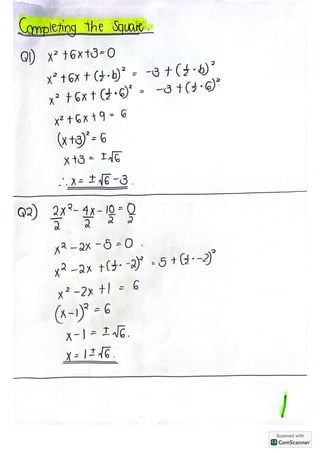 Completing The Square.
Q1) x² + 6x + 3 = 0
x² + 6x + (½·b)² = -3 + (½·b)²
x² + 6x + (½·6)² = -3 + (½·6)²
x² + 6x + 9 = 6
(x+3)² = 6
x + 3 = ±√6
∴ x = ±√6 - 3.
Q2) 2x²/2 - 4x/2 - 10/2 = 0/2
x² - 2x - 5 = 0.
x² - 2x + (½·-2)² = 5 + (½·-2)²
x² - 2x + 1 = 6
(x-1)² = 6
x - 1 = ±√6.
x = 1 ± √6.
1
Scanned with
CS CamScanner